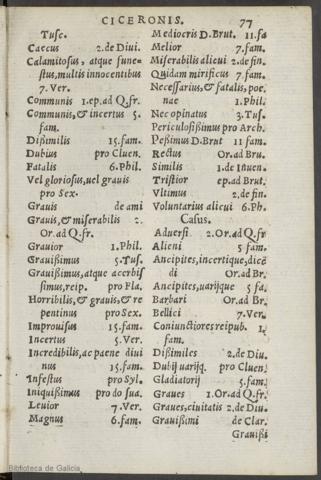 CICERONIS. 77
Tusc.
Caecus 2.de Diui.
Calamitosus, atque fune-
stus, multis innocentibus
7. Ver.
Communis 1.ep.ad Q.fr.
Communis, & incertus 5.
fam.
Dißimilis 15.fam.
Dubius pro Cluen.
Fatalis 6.Phil.
Vel gloriosus, vel grauis
pro Sex.
Grauis de ami
Grauis, & miserabilis 2.
Or.ad Q.fr.
Grauior 1.Phil.
Grauißimus 5.Tus.
Grauißimus, atque acerbis
simus, reip. pro Fla.
Horribilis, & grauis, & re
pentinus pro Sex.
Improuisus 15.fam.
Incertus 5.Ver.
Incredibilis, ac paene diui
nus 15.fam.
Infestus pro Syl.
Iniquißimus pro do sua.
Leuior 7.Ver.
Magnus 6.fam.
Mediocris D.Brut. 11.fa
Melior 7.fam.
Miserabilis alicui 2.de fin.
Quidam mirificus 7.fam.
Necessarius, & fatalis, poe-
nae 1.Phil.
Nec opinatus 3.Tus.
Periculosißimus pro Arch.
Peßimus D.Brut 11 fam.
Rectus Or.ad Bru.
Similis 1.de Inuen.
Tristior ep.ad Brut.
Vltimus 2.de fin.
Voluntarius alicui 6.Ph.
Casus.
Aduersi 2.Or.ad Q.fr
Alieni 5 fam.
Ancipites, incertique, dicē
di Or.ad Br.
Ancipites, uarijque 5 fa.
Barbari Or.ad Br.
Bellici 7.Ver.
Coniunctiores reipub. 1.
fam.
Dißimiles 2.de Diu.
Dubij uarijq. pro Cluen.
Gladiatorij 5.fam.
Graues 1.Or.ad Q.fr.
Graues, ciuitatis 2.de Diu.
Grauißimi de Clar.
Grauißi
Biblioteca de Galicia